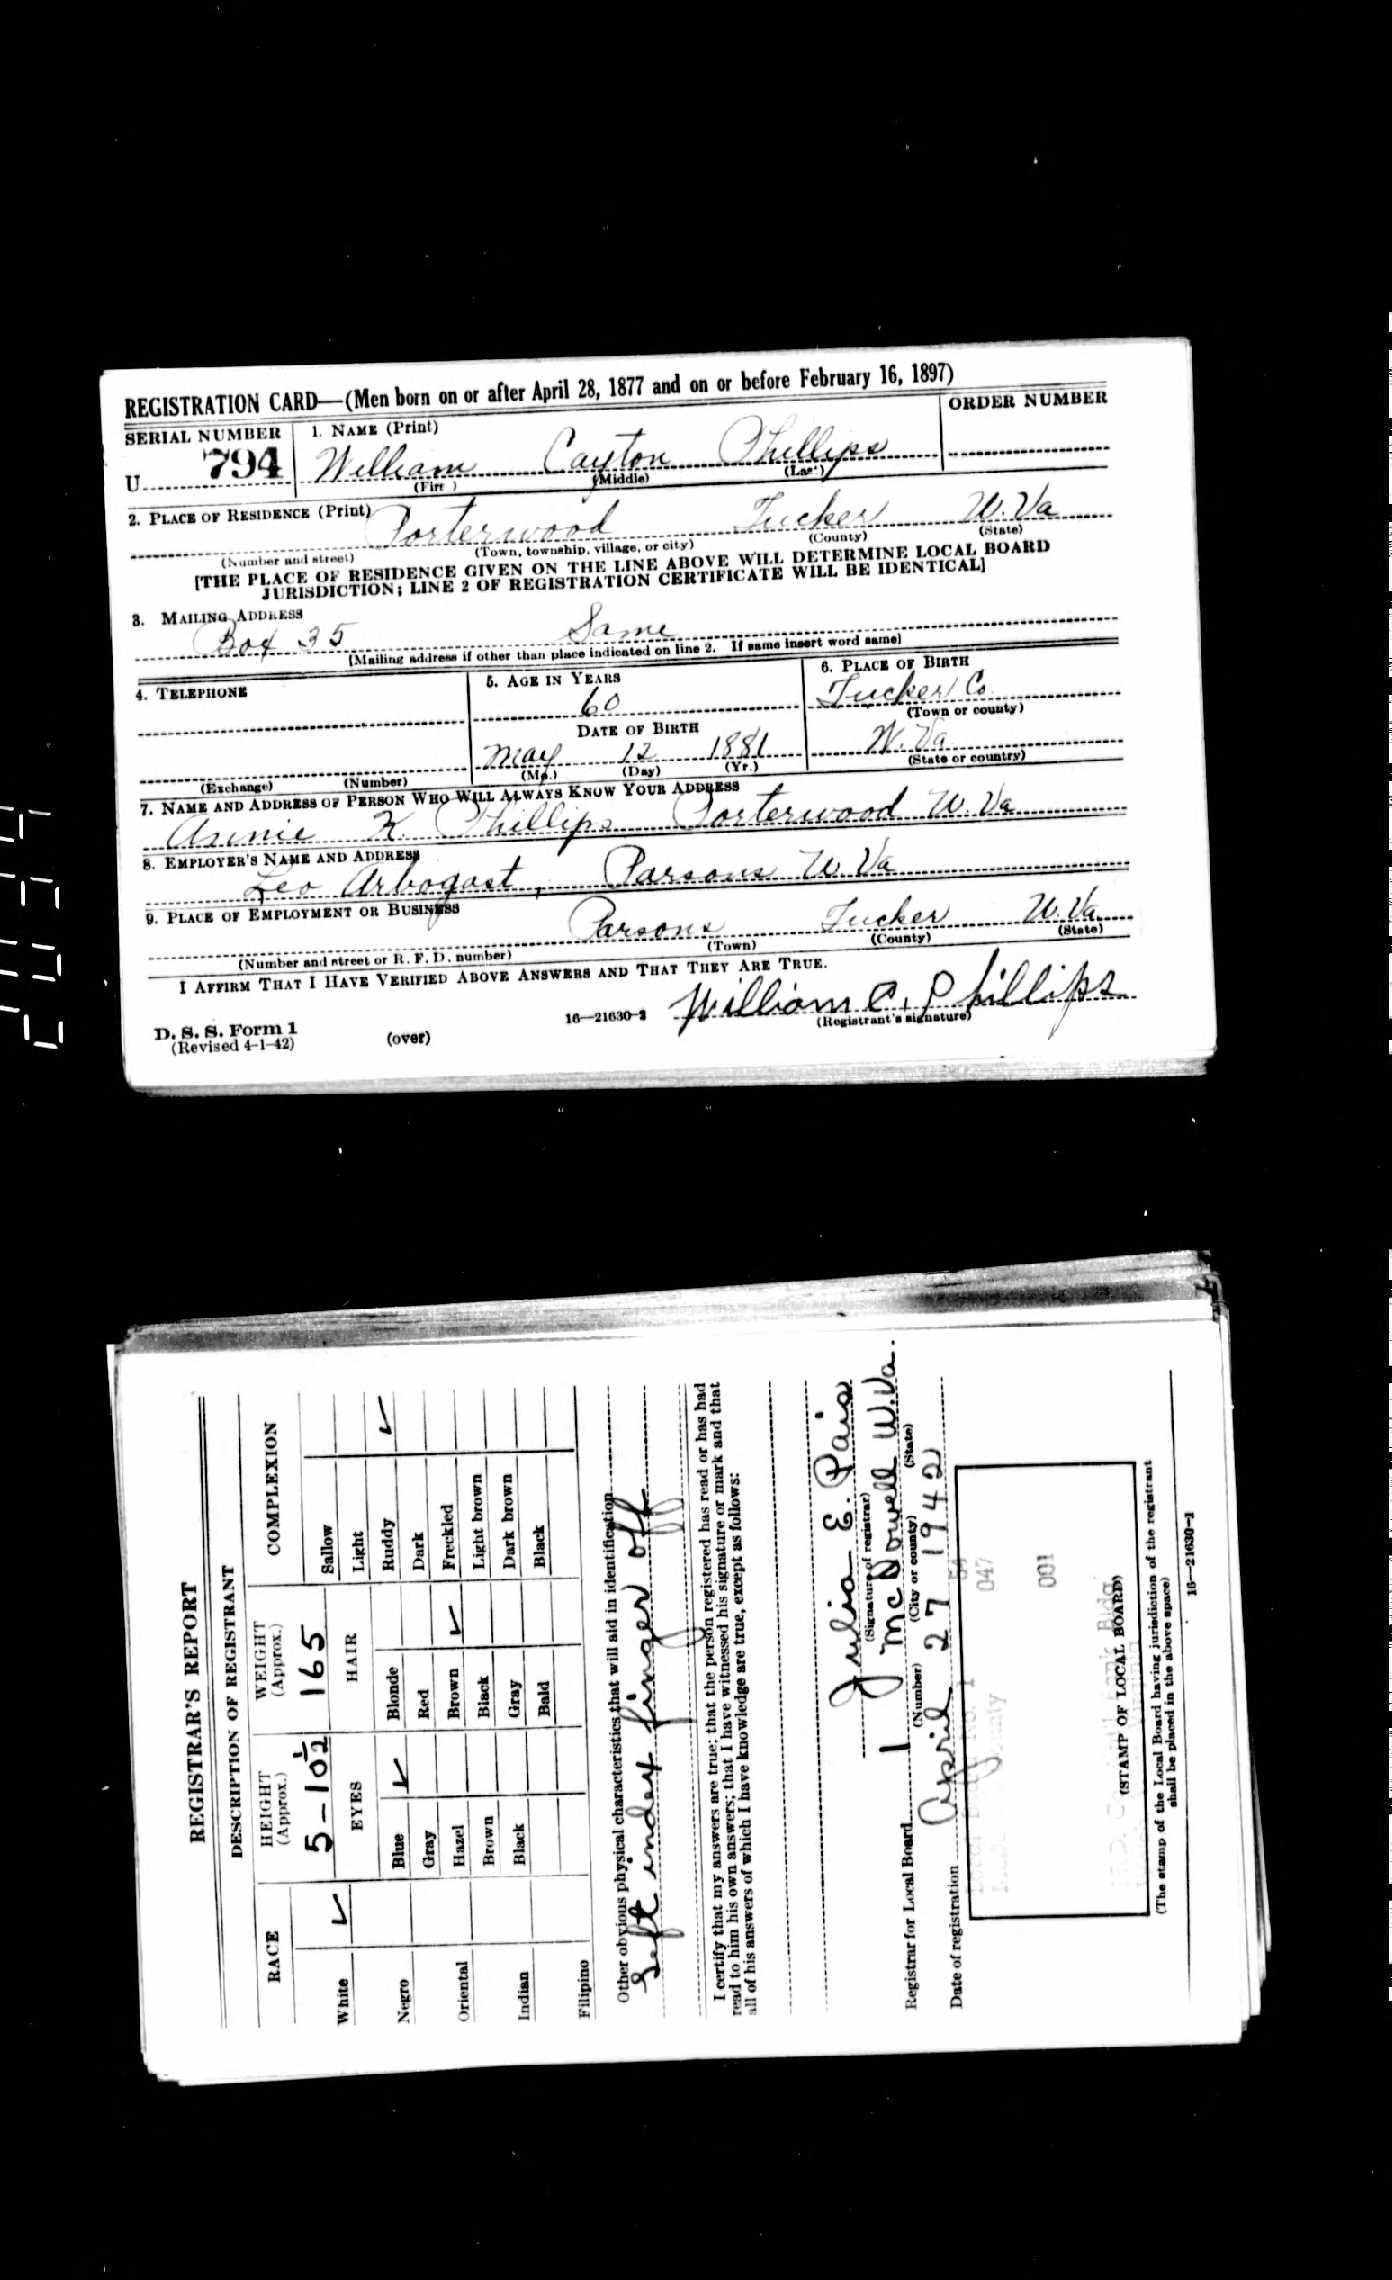 REGISTRATION CARD—(Men born on or after April 28, 1877 and on or before February 16, 1897)
SERIAL NUMBER
1. NAME (Print)
ORDER NUMBER
U 794
William Cayton Phillips
(Firt ) (Middle) (Last)
2. PLACE OF RESIDENCE (Print)
Porterwood Tucker W. Va
(Number and street) (Town, township, village, or city) (County) (State)
[THE PLACE OF RESIDENCE GIVEN ON THE LINE ABOVE WILL DETERMINE LOCAL BOARD
JURISDICTION; LINE 2 OF REGISTRATION CERTIFICATE WILL BE IDENTICAL]
3. MAILING ADDRESS
Box 35 Same
(Mailing address if other than place indicated on line 2. If same insert word same)
4. TELEPHONE
(Exchange) (Number)
5. AGE IN YEARS
60
DATE OF BIRTH
May 12 1881
(Mo.) (Day) (Yr.)
6. PLACE OF BIRTH
Tucker Co.
(Town or county)
W. Va
(State or country)
7. NAME AND ADDRESS OF PERSON WHO WILL ALWAYS KNOW YOUR ADDRESS
Annie K. Phillips Porterwood W. Va
8. EMPLOYER'S NAME AND ADDRESS
Leo Arbogast, Parsons W. Va
9. PLACE OF EMPLOYMENT OR BUSINESS
Parsons Tucker W. Va.
(Number and street or R. F. D. number) (Town) (County) (State)
I AFFIRM THAT I HAVE VERIFIED ABOVE ANSWERS AND THAT THEY ARE TRUE.
William C. Phillips
(Registrant's signature)
D. S. S. Form 1
(Revised 4-1-42)
(over)
16—21630-2
REGISTRAR'S REPORT
DESCRIPTION OF REGISTRANT
RACE
HEIGHT
(Approx.)
WEIGHT
(Approx.)
COMPLEXION
5-10½
165
EYES
HAIR
White ✓
Negro
Oriental
Indian
Filipino
Blue ✓
Gray
Hazel
Brown
Black
Blonde
Red
Brown ✓
Black
Gray
Bald
Sallow
Light
Ruddy ✓
Dark
Freckled
Light brown
Dark brown
Black
Other obvious physical characteristics that will aid in identification
Left index finger off
I certify that my answers are true; that the person registered has read or has had
read to him his own answers; that I have witnessed his signature or mark and that
all of his answers of which I have knowledge are true, except as follows:
Julia E.
(Signature of registrar)
Registrar for Local Board 1 McDowell W. Va.
(Number) (City or county) (State)
Date of registration April 27 1942
54
047
001
(STAMP OF LOCAL BOARD)
(The stamp of the Local Board having jurisdiction of the registrant
shall be placed in the above space)
16—21630-1